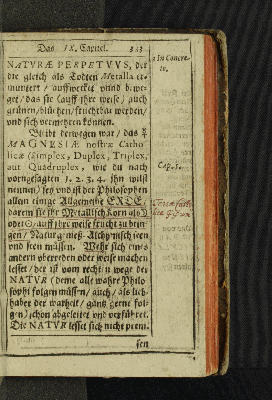 Das IX. Capitel.
NATVRÆ PERPETVVS, der
die gleich als Todten Metalla er-
muntert / auffwecket vnnd b. we-
get / das sie (auff jhre weise) auch
grünen / blühen / fruchtbar werden /
vnd sich vermehren können.
Bleibt derwegen war / das
MAGNESIÆ nostræ Catho-
licæ (Simplex, Duplex, Triplex,
aut Quadruplex, wie du nach
vorgesagten 1. 2. 3. 4. jhn wilst
nennen) sey vnd ist der Philosophen
allein einige Allgemeine ERDE,
darein sie jhr Metallisch Korn
oder auff jhre weise frucht zu brin-
gen / Naturgemeß Alchymisch
vnd seen müssen. Wehr sich eines
andern vbereden oder weise machen
lesset / der ist vom rechten wege der
NATVR (deme alle wahre Philo-
sophi folgen müssen / auch / als lieb-
haber der warheit / gantz gerne fol-
gen) schon abgeleitet vnd verführet.
Die NATVR lesset sich nicht
sen
In Concre-
to.
Cap. 5.